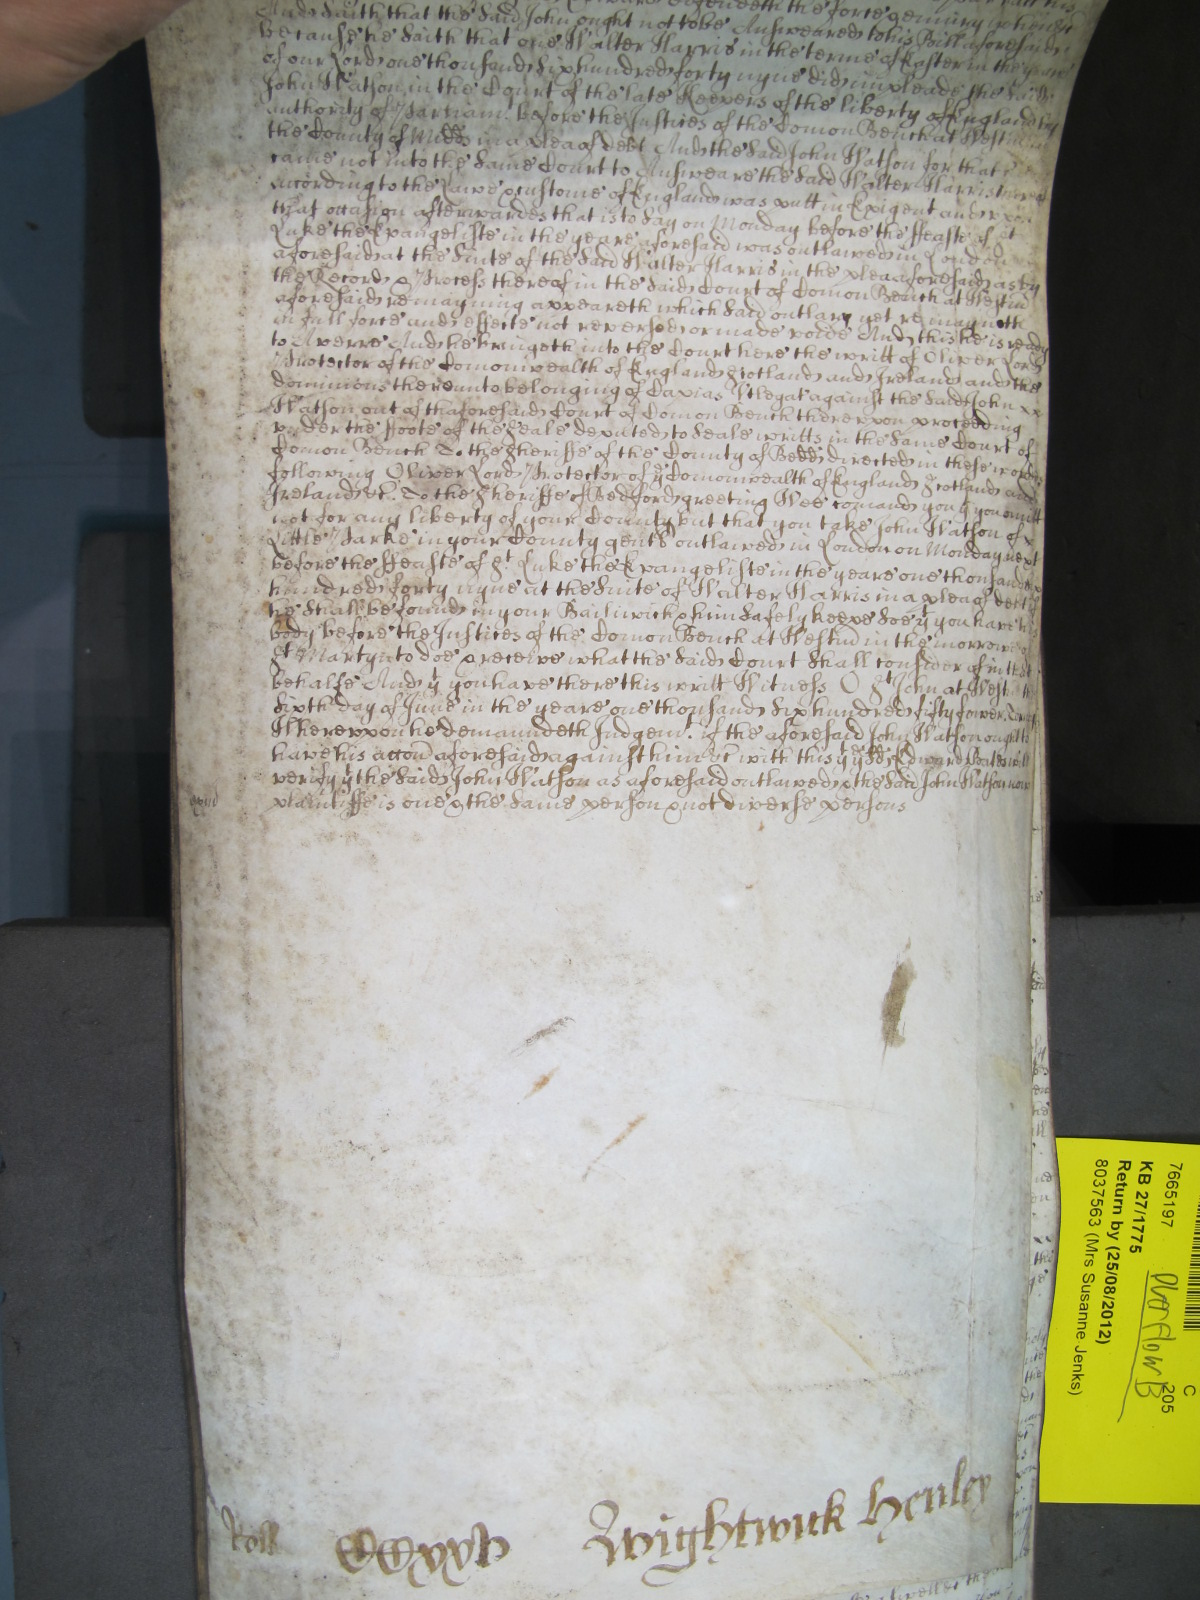 And saith that the said John ought not to be Answeared to his Bill aforesaid
because he saith that one Walter Harris in the terme of Easter in the yeare
of our Lord one thousand six hundred forty nyne did impleade the said
John Watson in the Court of the late Keepers of the liberty of England by
authority of Parliam^t before the Justices of the Comon Bench at Westm
the County of Midds in a plea of debt And the said John Watson for that
came not into the same Court to Answeare the said Walter Harris
according to the Lawe & custome of England was putt in Exigent and
that occasion afterwardes that is to say on Monday before the ffeast of St
Luke the Evangeliste in the yeare aforesaid was outlawed in London
aforesaid at the Suite of the said Walter Harris in the plea aforesaid as by
the Record & Process thereof in the said Court of Comon Bench at Westm
aforesaid remayning appeareth which said outlary yet remayneth
in full force and effecte not reversed or made voide And this he is ready
to Averre And he bringeth into the Court here the writt of Oliver Lord
Protector of the Comonwealth of England Scotland and Ireland and the
dominions thereunto belonging of Capias Utlegat against the said John
Watson out of thaforesaid Court of Comon Bench thereupon proceeding
under the ffoote of the Seale deputed to seale writts in the same Court of
Comon Bench To the Sheriffe of the County of Bedd directed in these wordes
following Oliver Lord Protector of y^e Comonwealth of England Scotland and
Ireland &c. To the Sheriffe of Bedford greeting Wee comand you y^t you omitt
not for any liberty of your County but that you take John Watson of
Little Barke in your County gent outlawed in London on Monday next
before the ffeaste of S^t Luke the Evangeliste in the yeare one thousand
hundred forty nyne at the Suite of Walter Harris in a plea of debt if
he shall be found in your Bailiwick & him safely keepe soe y^t you have his
body before the Justices of the Comon Bench at Westm in the morrow of
S^t Martyn to doe & receive what the said Court shall consider of in that
behalfe And y^t you have there this writt Witness O S^t John at Westm
sixth day of June in the yeare one thousand six hundred fifty fower
Whereupon he demaundeth Judgem^t if the aforesaid John Watson ought to
have his accon aforesaid against him &c with this y^t y^e sd Edward
verify y^t the said John Watson as aforesaid outlawed & the said John Watson now
plaintiffe is one & the same person & not diverse persons
Roll CCxxv Wightwick Henley
7665197
KB 27/1775
Return by (25/08/2012)
8037563 (Mrs Susanne Jenks)
C
205
Overflow B